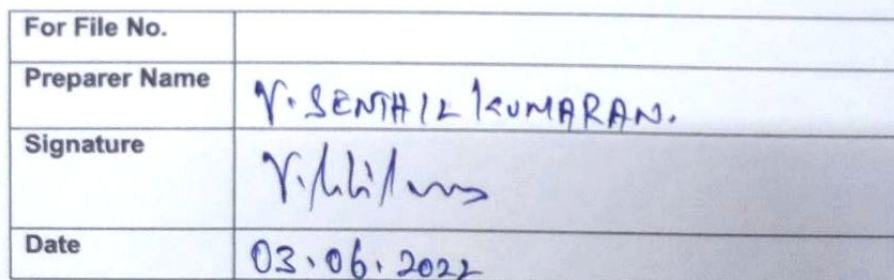 For File No.
Preparer Name V. SENTHIL KUMARAN.
Signature
Date 03.06.2022